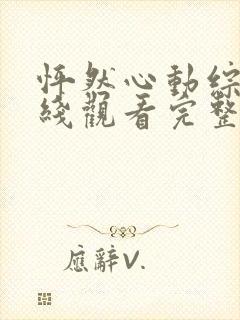 怦然心動綜
綫觀看完整
應辭V.